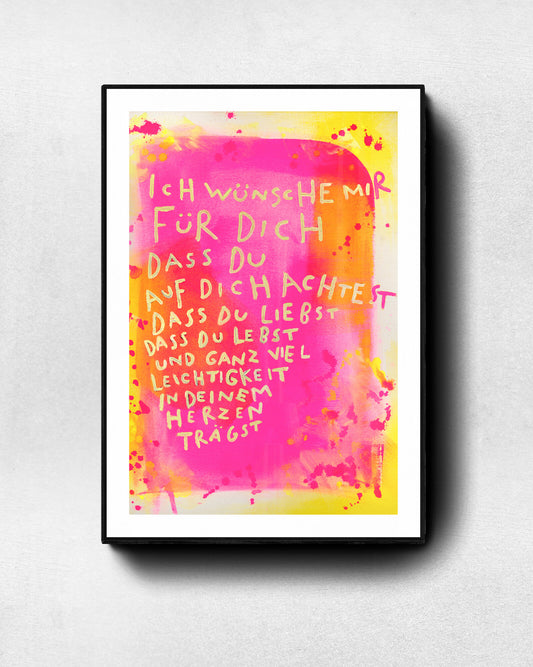 ICH WÜNSCHE MIR
FÜR DICH
DASS DU
AUF DICH ACHTEST
DASS DU LIEBST
DASS DU LEBST
UND GANZ VIEL
LEICHTIGKEIT
IN DEINEM
HERZEN
TRÄGST